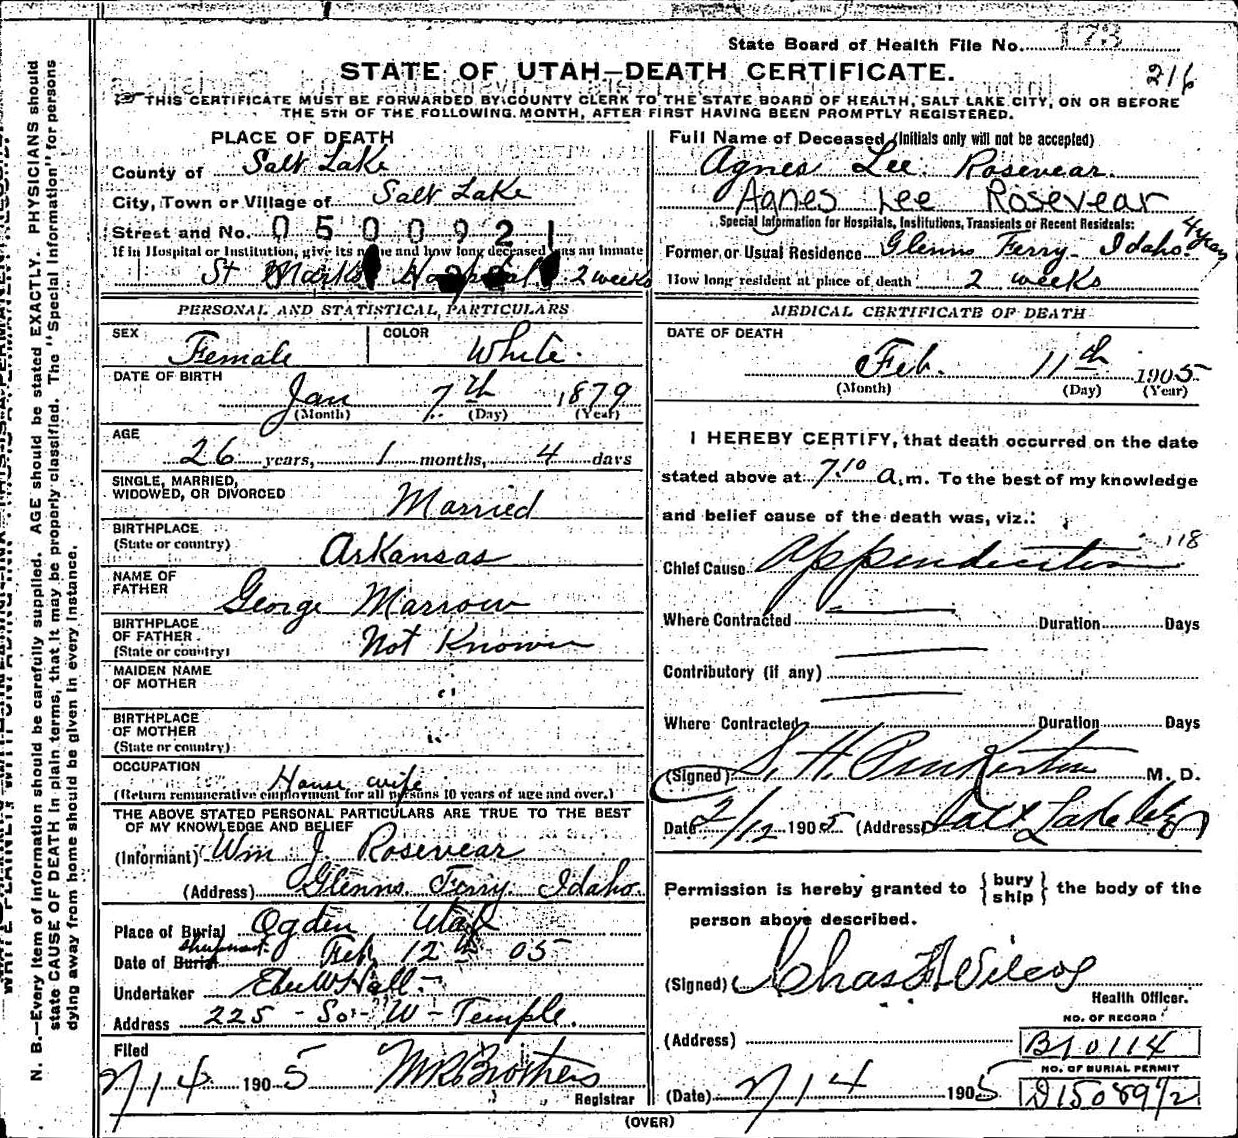 State Board of Health File No. 173
216
STATE OF UTAH—DEATH CERTIFICATE.
THIS CERTIFICATE MUST BE FORWARDED BY COUNTY CLERK TO THE STATE BOARD OF HEALTH, SALT LAKE CITY, ON OR BEFORE
THE 5TH OF THE FOLLOWING MONTH, AFTER FIRST HAVING BEEN PROMPTLY REGISTERED.
PLACE OF DEATH
County of Salt Lake
City, Town or Village of Salt Lake
Street and No. 0500921
If in Hospital or Institution, give its name and how long deceased was an inmate
St Marks Hospital 2 weeks
Full Name of Deceased (Initials only will not be accepted)
Agnes Lee Rosevear.
Agnes Lee Rosevear
Special Information for Hospitals, Institutions, Transients or Recent Residents:
Former or Usual Residence Glenns Ferry Idaho. 4 years
How long resident at place of death 2 weeks
PERSONAL AND STATISTICAL PARTICULARS
SEX Female
COLOR White.
DATE OF BIRTH
Jan 7th 1879
(Month) (Day) (Year)
AGE
26 years, 1 months, 4 days
SINGLE, MARRIED,
WIDOWED, OR DIVORCED Married
BIRTHPLACE
(State or country) Arkansas
NAME OF
FATHER George Marrow
BIRTHPLACE
OF FATHER
(State or country) Not Known
MAIDEN NAME
OF MOTHER "
BIRTHPLACE
OF MOTHER
(State or country) "
OCCUPATION House wife
(Return remunerative employment for all persons 10 years of age and over.)
THE ABOVE STATED PERSONAL PARTICULARS ARE TRUE TO THE BEST
OF MY KNOWLEDGE AND BELIEF
(Informant) Wm J. Rosevear
(Address) Glenns Ferry Idaho
Place of Burial Ogden Utah
Shipment
Date of Burial Feb 12th 05
Undertaker Eber W Hall
Address 225 - So - W - Temple.
Filed
2/14 1905 Registrar
MEDICAL CERTIFICATE OF DEATH
DATE OF DEATH
Feb. 11th 1905
(Month) (Day) (Year)
I HEREBY CERTIFY, that death occurred on the date
stated above at 7.10 a.m. To the best of my knowledge
and belief cause of the death was, viz.:
118
Chief Cause Appendicitis
Where Contracted Duration Days
Contributory (if any)
Where Contracted Duration Days
(Signed) S. H. Pinkerton M. D.
Date 2/12 1905 (Address) Salt Lake City
Permission is hereby granted to {bury ship} the body of the
person above described.
(Signed) Chas F Wilcox
Health Officer.
NO. OF RECORD
(Address) B10114
NO. OF BURIAL PERMIT
(Date) 2/14 1905 D15089 1/2
(OVER)
N. B.—Every item of information should be carefully supplied. AGE should be stated EXACTLY. PHYSICIANS should
state CAUSE OF DEATH in plain terms, that it may be properly classified. The "Special Information" for persons
dying away from home should be given in every instance.